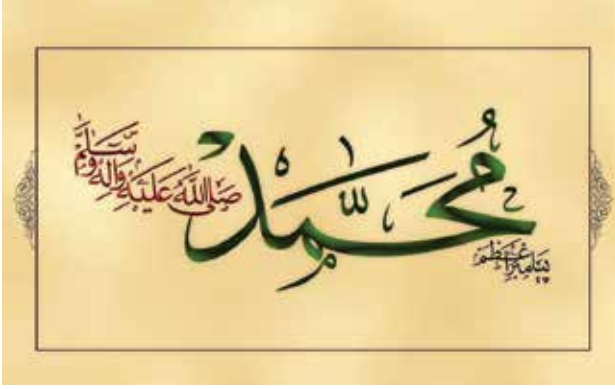 مُحَمَّد
صَلَّى اللَّهُ عَلَيْهِ وَآلِهِ وَسَلَّمَ
پیامبر اعظم